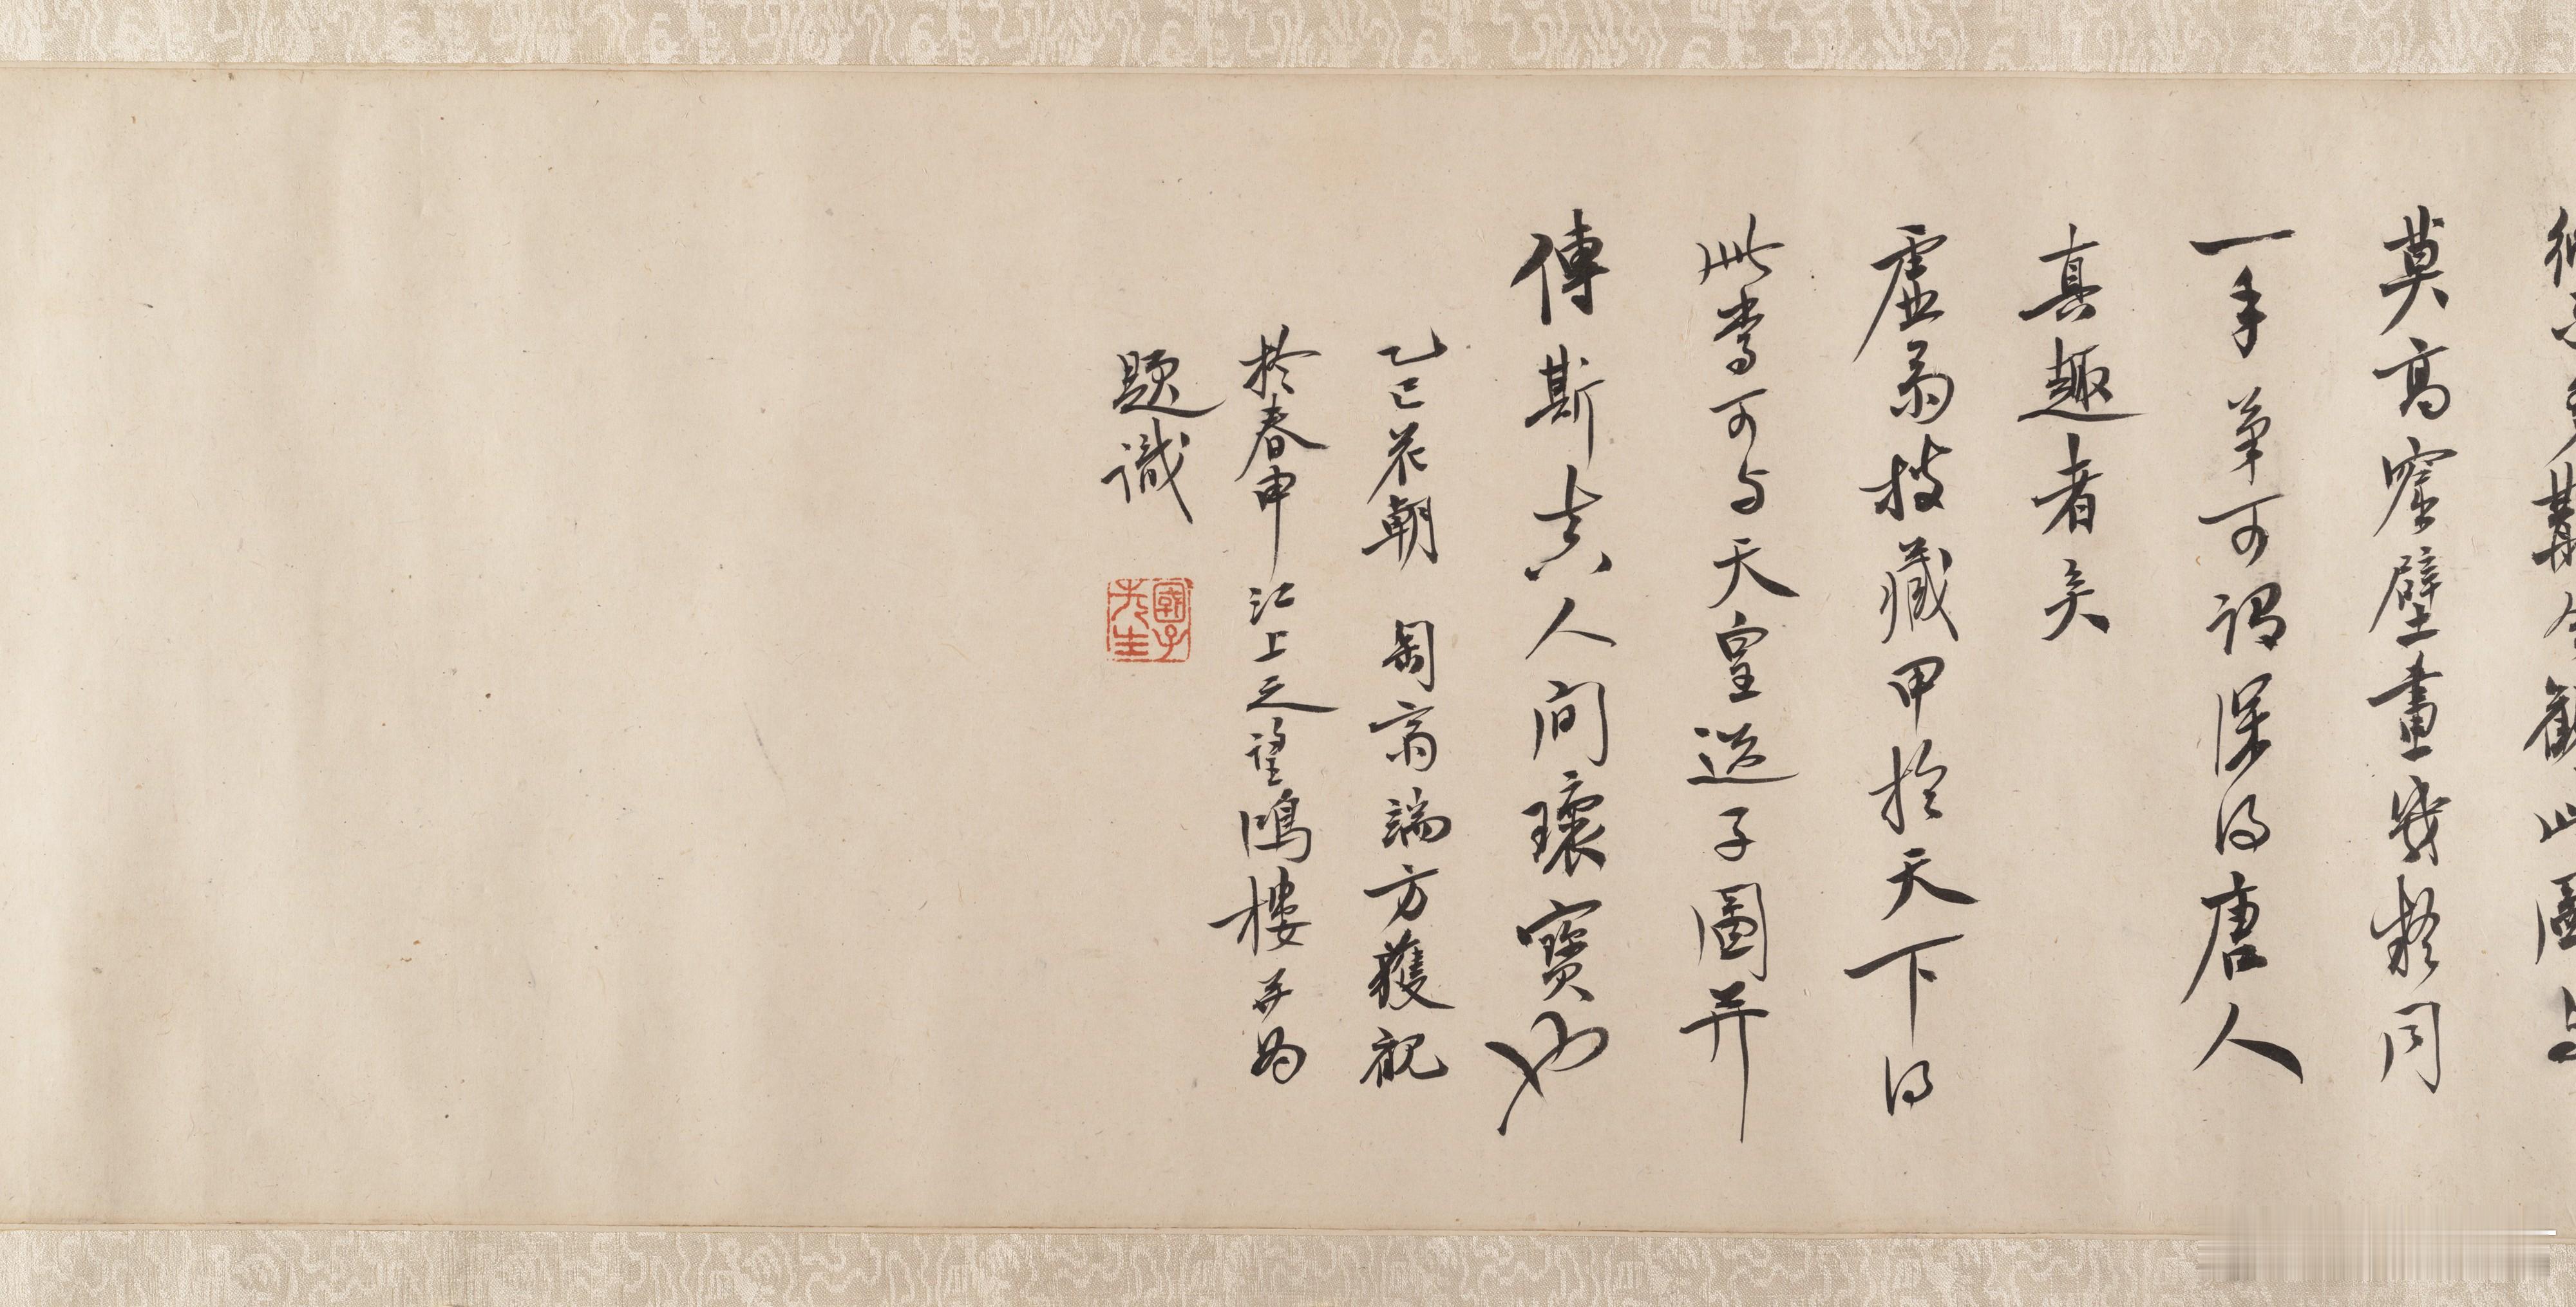 莫高窟壁畫安整同
一手筆可謂深得唐人
真趣者矣
虛齋收藏甲於天下得
此當可与天皇送子圖并
傳斯真人間瓌寶也
乙巳花朝 匋齋端方獲觀
於春申江上之望鷗樓并為
題識
先生